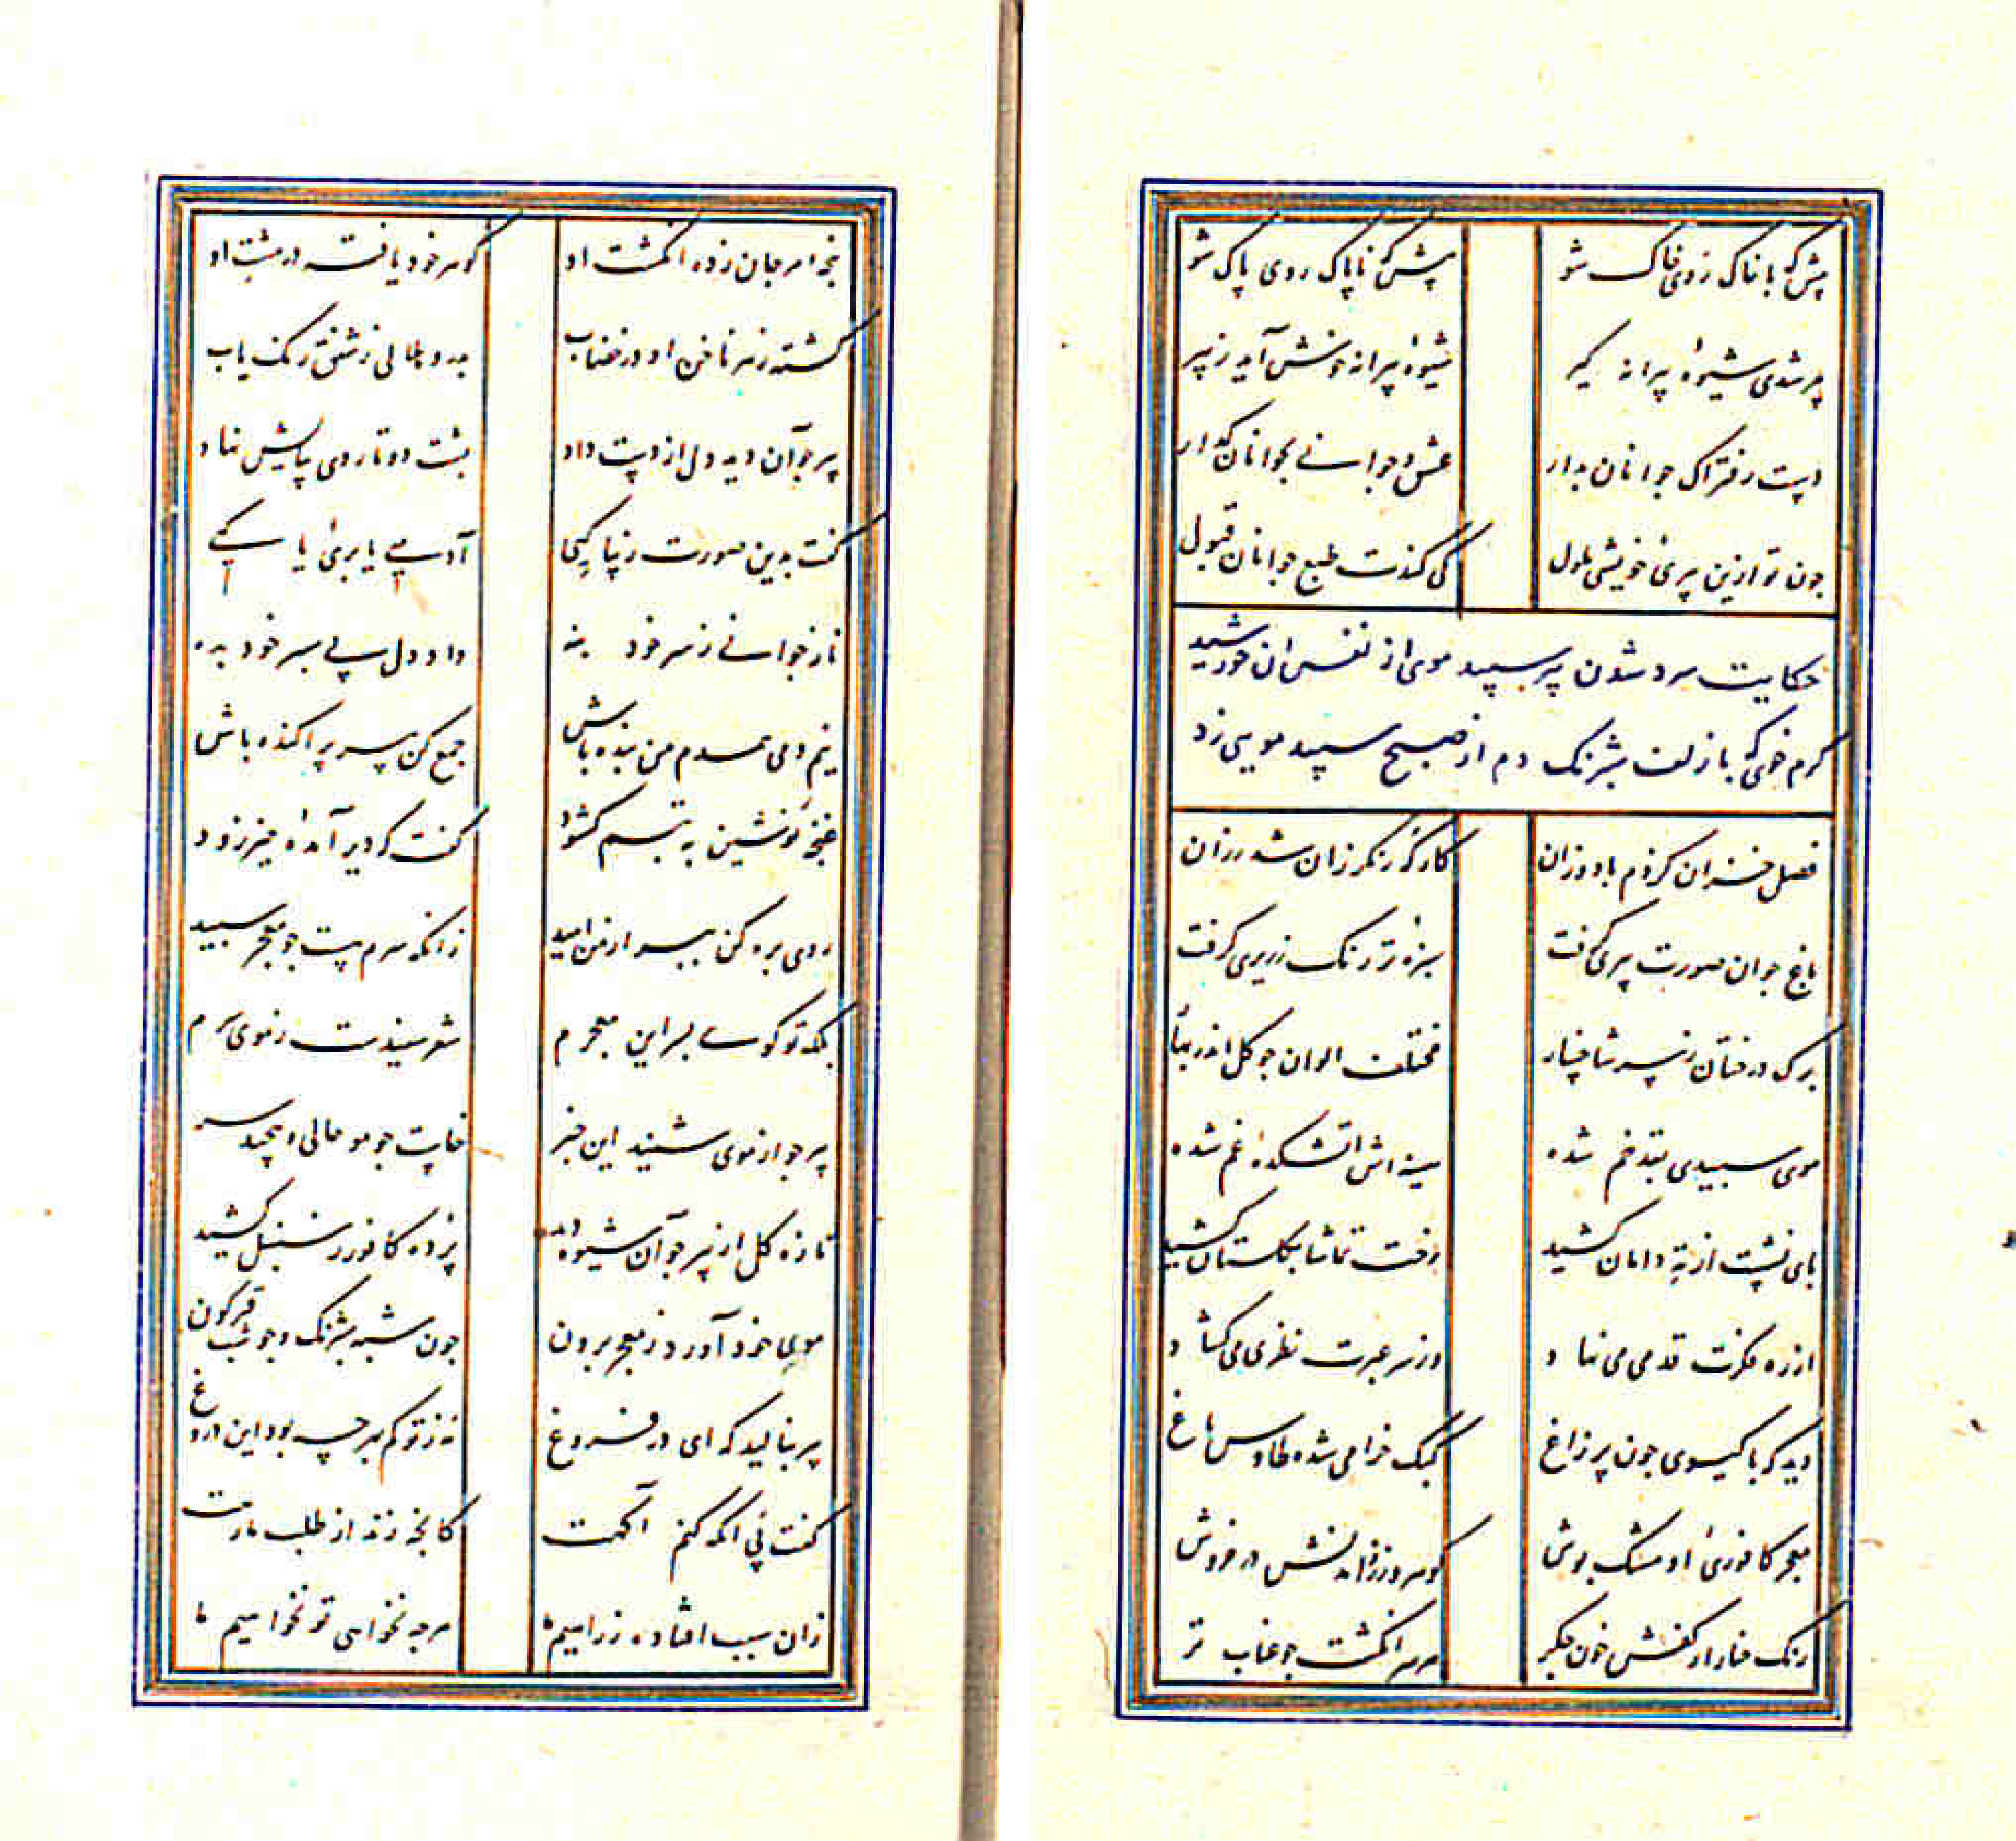 پیش که با خاک روی خاک شو پیش که ناپاک روی پاک شو
پیر شدی شیوهٔ پیرانه گیر شیوهٔ پیرانه خوش آید ز پیر
دست ز فتراک جوانان بدار عشق و جوانی بجوانان گذار
چون تو ازین پیریٔ خویشی ملول کی کندت طبع جوانان قبول
حکایت سرد شدن پیر سپید موی از نفس ان خورشید
گرم خوی که با زلف شبرنگ دم از صبح سپید مویی زد
فصل خزان کز دم باد وزان کارگه رنگرزان شد رزان
باغ جوان صورت پیری گرفت سبزهٔ تر رنگ زریری گرفت
برگ درختان ز سر شاخسار مختلف الوان چو گل اندر بهار
موی سپیدی بقد خم شده سینه اش آتشکدهٔ غم شده
پای نشست از ته دامان کشید رخت تماشا بگلستان کشید
از ره فکرت قدمی می نهاد وز سر عبرت نظری می گشاد
دید که با گیسوی چون پر زاغ کبک خرامی شده طاوس باغ
معجر کافوریٔ او مشک پوش گوهر در فروش
رنگ حنا از کفش خون جگر هر سر انگشت چو عناب تر
پنجه مرجان زده انگشت او گوهر خود یافته در مشت او
گشته ز هر ناخن او در خضاب بدر و هلالی ز شفق رنگ یاب
پیر چو آن دید دل از دست داد پشت دوتا روی بپایش نهاد
گفت بدین صورت زیبا کیی آدمیی یا پریٔ یا کیی
ناز جوانی ز سر خود بنه داد دل بی سر خود بده
نیم دمی همدم من بنده باش جمع کن پیر پراکنده باش
غنچه نوشین به تبسم گشود گفت که دیر آمدهٔ خیز زود
روی بره کن ببر از من امید زانکه سرم هست چو معجر سپید
بلکه تو گویی بسر این معجرم شعر سپیدست ز موی سرم
پیر چو از موی شنید این خبر خاست چو مو حالی و پیچید سر
تازه گل از پیر چو آن شیوه دید پرده کافور ز سنبل کشید
موی خود آورد ز معجر برون چون شبه شبرنگ و چو شب قیرگون
پیر بنالید که ای در فروغ نه ز تو کم بهر چه بود این دروغ
گفت پی آنکه کنم آگهت کانچه زند از طلب ما رهت
زان سبب افتاده ز راهیم ما هرچه نخواهی تو نخواهیم ما